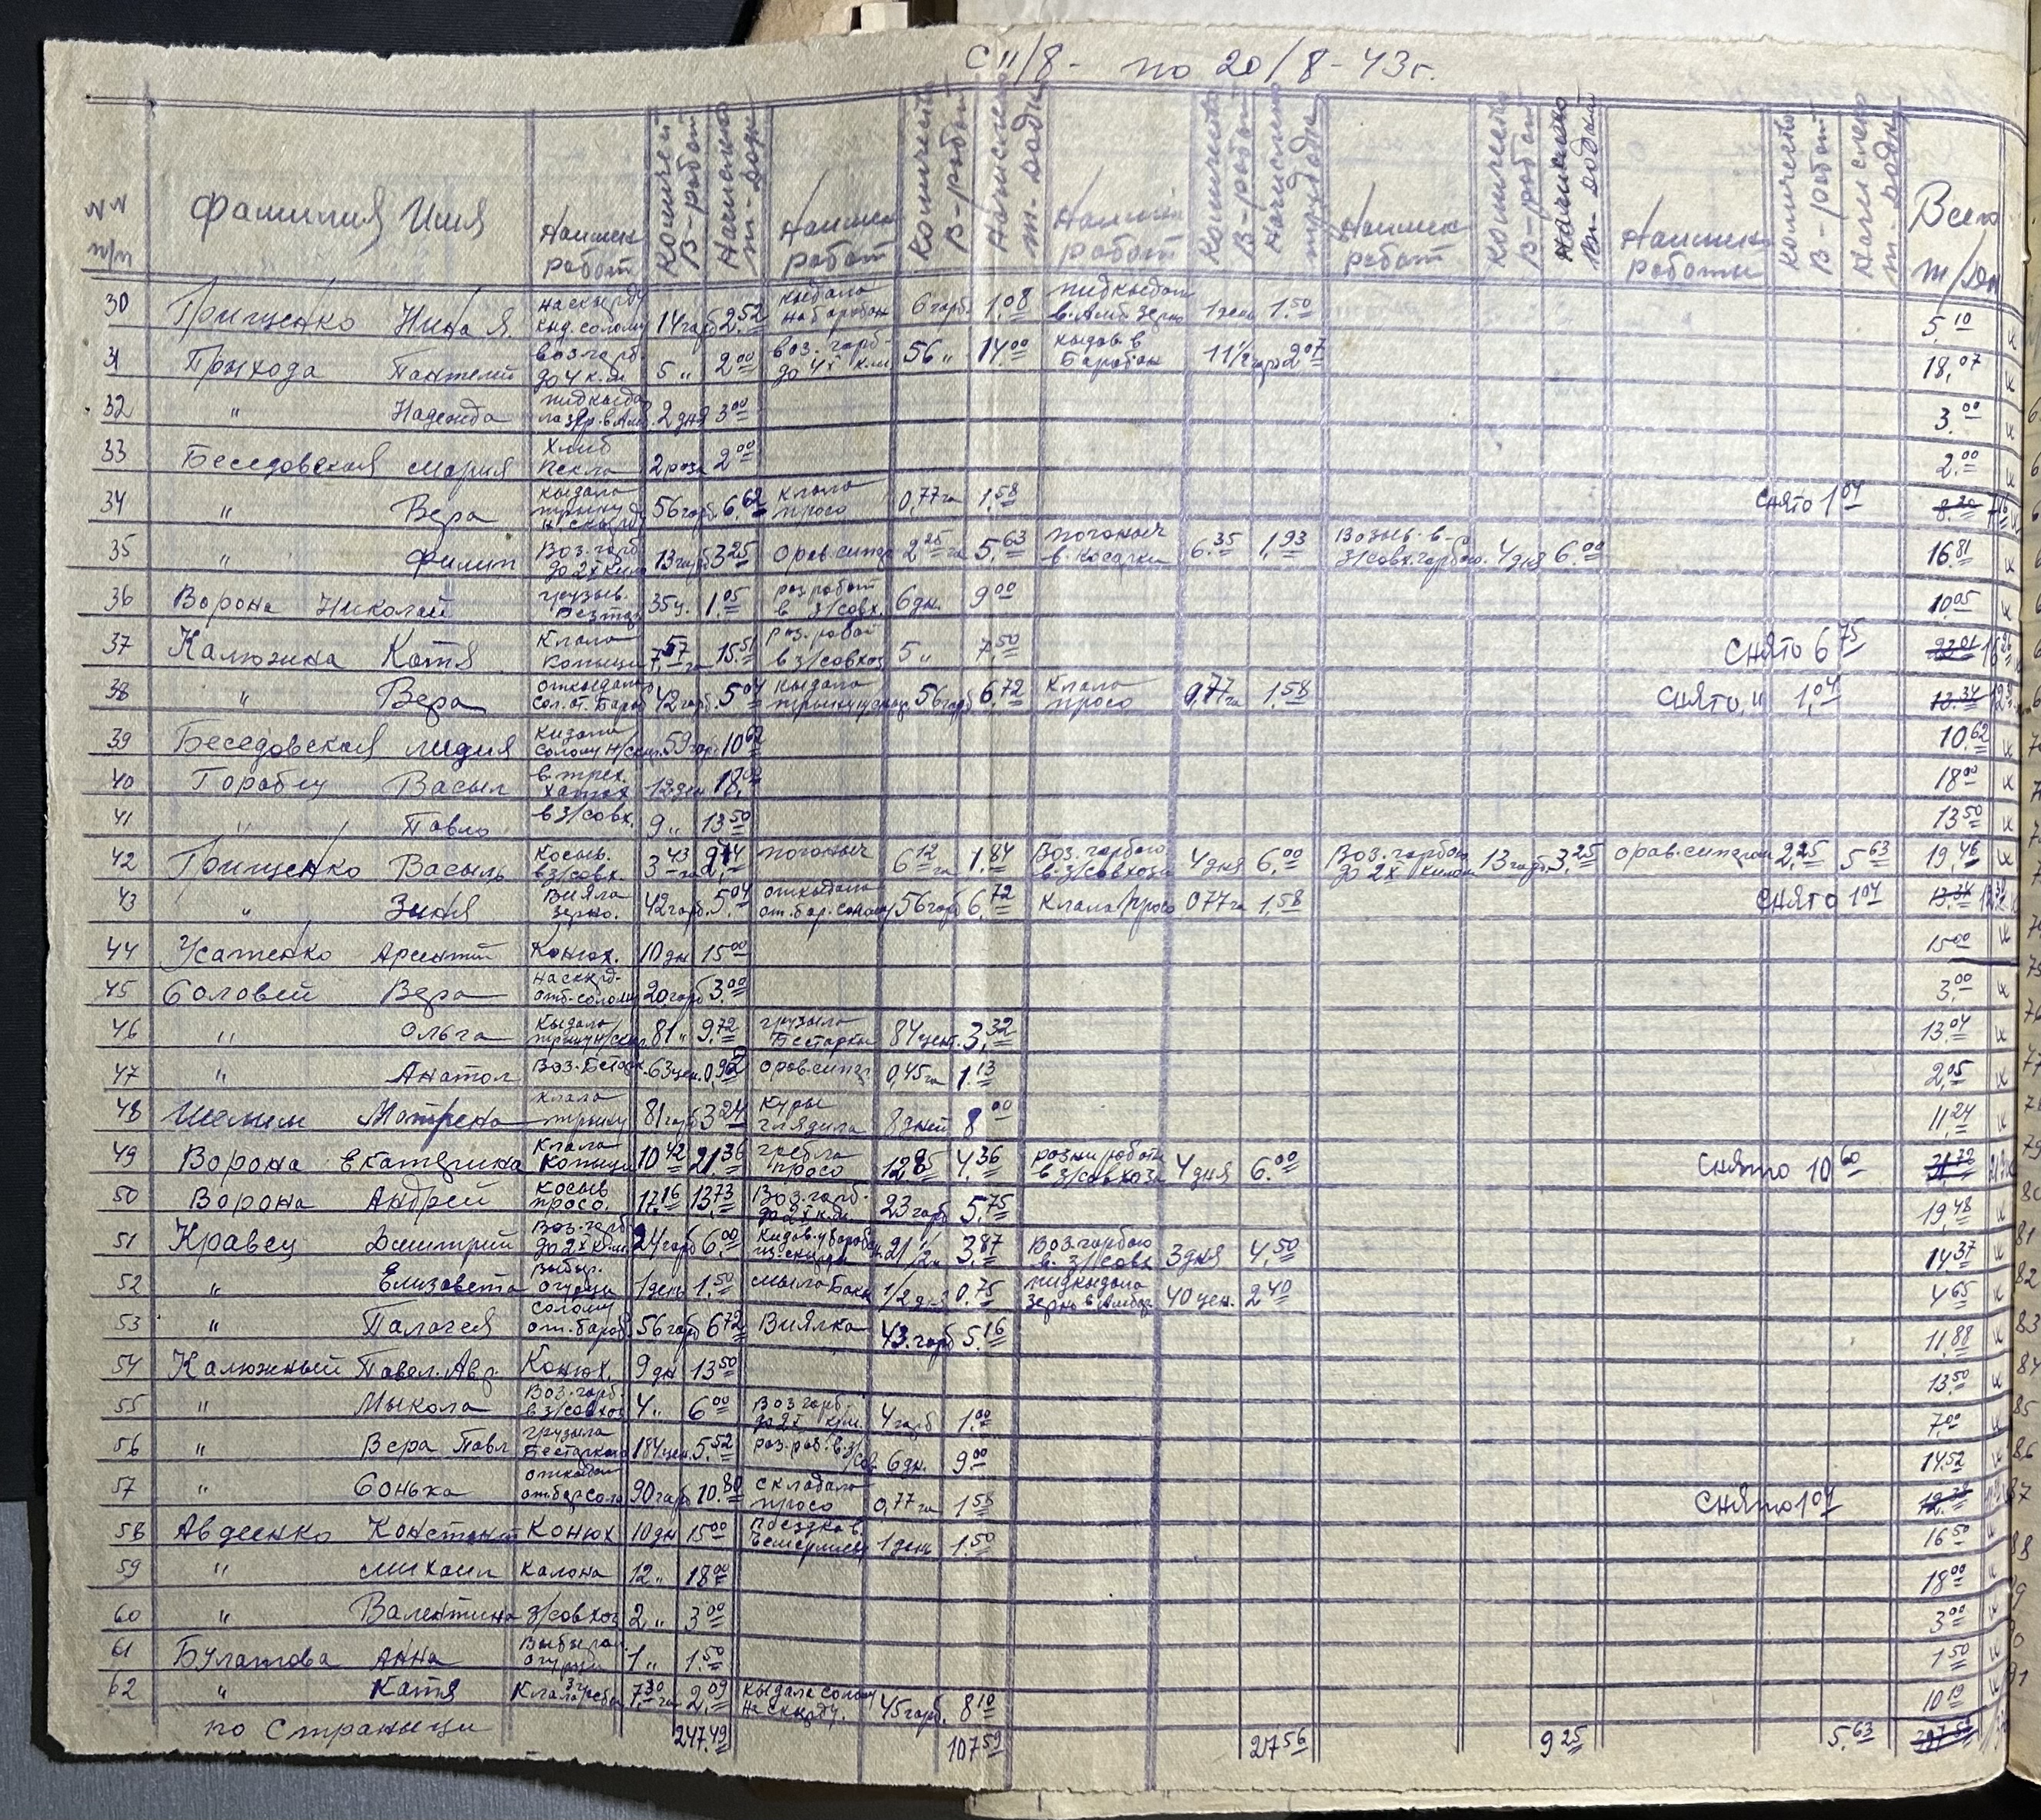 С 11/8 - по 20/8 - 43 г.
NN п/п Фамилия Имя Наимен работ Количест В-работ Начислено т-додн Наимен работ Количест В-работ Начислено т-додн Наимен работ Количество В-работ Начислено трудодн Наимен работ Количество В-работ Начислено т-додн Наимен работы Количество В-работ Начислено т-додн Всего т/дн
30 Грищенко Нина Я. наскырду кид. солому 14 гарб 2.52 кыдала на барабан 6 гарб. 1.08 пидкыдат в. Амб зерно 1 день 1.50 5.10
31 Прихода Пантелий воз гарб. до 4 к.м 5 " 2.00 воз. гарб- до 4х к.м 56 " 14.00 кыдав в Барабан 11 1/2 гарб 2.07 18,07
32 " Надежда пидкыда ла зер. в Амб 2 дня 3.00 3.00
33 Беседовская Мария Хлиб пекла 2 раза 2.00 2.00
34 " Вера кыдала 56 гарб. 6.62 клала просо 0,77 га 1.58 снято 1 04 8.20 7.16
35 " Филип Воз. гарб до 2х к.м 13 гарб 3.25 орав. сипар 2.25 га 5.63 погоныч в. косарки 6.35 1,93 Возыв. в- з/совх. гарбою. 4 дня 6.00 16.81
36 Ворона Николай грузыв. Безтар 35 ц. 1.05 роз работ в з/совх. 6 дн. 9.00 10.05
37 Калюжна Катя Клала копыци 7,57 га 15.51 Раз. работ в з/совхоз 5 " 7,50 снято 6 75 23.01 16.26
38 " Вера откыдала сол. от. Бараб 42 гарб. 5.04 кыдала 56 гарб 6.72 Клала просо 0,77 га 1,58 снято " 1,04 13.34
39 Беседовская Лидия Кидала солому н/скир. 59 гар. 10.62 10.62
40 Горобец Васыл в трех. хатах 12 ден 18.00 18.00
41 " Павло в з/совх. 9 " 13.50 13.50
42 Грищенко Васыль Косыв. в з/совх. 3.43 га погоныч 6.12 га 1.84 Воз. гарбою в. з/совхози 4 дня 6.00 Воз. гарбою до 2х килом 13 гарб. 3.25 орав. сипаром 2,25 5.63 19.46
43 " Зиня Вияла зерно. 42 гарб. 5.04 откыдала от. бар. солому 56 гарб 6.72 Клала просо 0 77 га 1.58 снято 1 04 13.34
44 Усатенко Арентий Конюх. 10 дн 15.00 15.00
45 Соловей Вера наскирд- отб- солому 20 гарб 3.00 3.00
46 " Ольга Кыдала 81 " 9.72 грузыла Бестарки 84 цент. 3.32 13.04
47 " Анатол Воз. Бестар. 63 цен. 0.92 орав. сипар. 0,45 га 1.13 2,05
48 Мотрена клала 81 гарб 3.24 Куры глядила 8 дней 8.00 11,24
49 Ворона Екатерина Клала Копыци 10.42 21.36 гребла просо 12 85 4.36 разни работы в з/совхози 4 дня 6.00 снято 10 60 31.72
50 Ворона Андрей Косыв просо. 17.16 13.73 Воз. гарб- до 2х к.м. 23 гарб 5.75 19,48
51 Кравец Дмитрий Воз. гарб до 2х к.м. 24 гарб 6.00 Кидав. у бараб. из скирды 21 1/2 " 3.87 Воз. гарбою в. з/совх 3 дня 4,50 14.37
52 " Елизавета Выбир. огурци 1 день 1.50 мыла Баки 1/2 дня 0.75 пидкыдала зерно в Амбар 40 цен. 2 40 4.65
53 " Палагея Солому от. бараб 56 гарб 6.72 Виялка 43. гарб 5.16 11,88
54 Калюжный Павел. Авр. Конюх. 9 дн 13.50 13.50
55 " Мыкола Воз. гарб. в з/совхоз 4 " 6.00 Воз гарб до 2х к.м. 4 гарб 1.00 7.00
56 " Вера Павл грузыла Бестаркою 184 цен. 5.52 раз. раб. в з/сов 6 дн. 9.00 14.52
57 " Сонька откыдал от. бар соло 90 гарб 10.80 складала просо 0,77 га 1.58 снято 1 04 12.38
58 Авдеенко Констант Конюх 10 дн 15.00 поездка в 1 день 1.50 16.50
59 " Михаил Калона 12 " 18.00 18.00
60 " Валентина з/совхоз 2 " 3.00 3.00
61 Булатова Анна Выбирал. огурци 1 " 1.50 1.50
62 " Катя Клала гребла 7.30 га 2.09 кыдала солому на скирду. 45 гарб. 8.10 10.19
по Страници 247.49 107.59 27 56 9 25 5.63